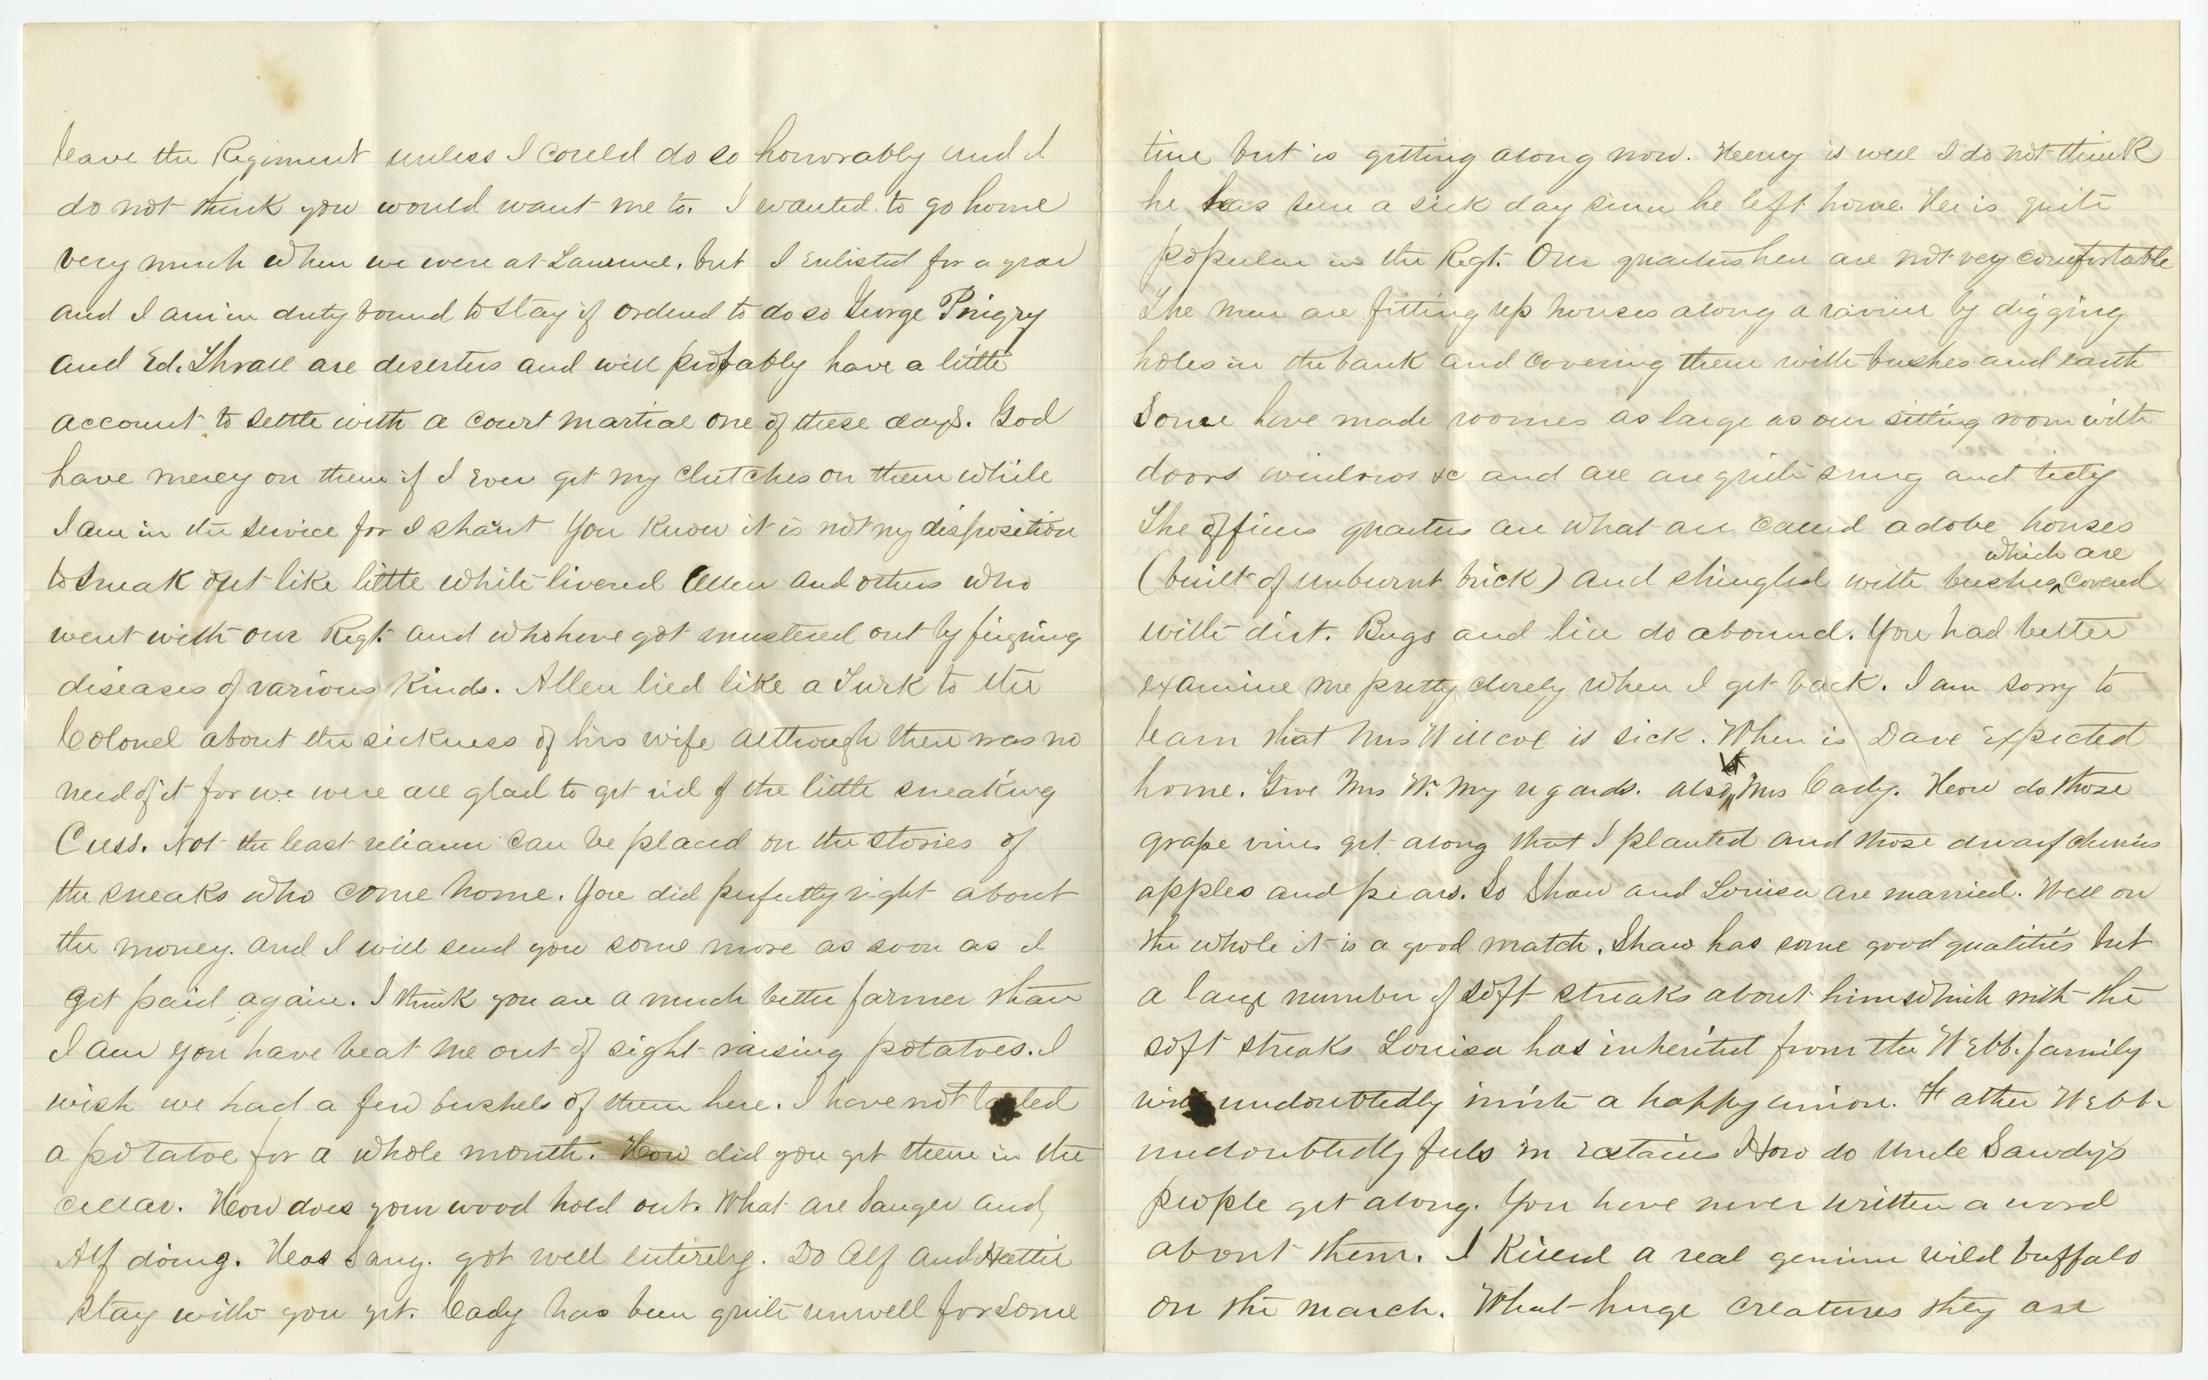 leave the Regiment unless I could do so honorably and I
do not think you would want me to. I wanted to go home
very much when we were at Larned. but I enlisted for a year
and I am in duty bound to stay if ordered to do so George Pingry
and Ed. Thrall are deserters and will probably have a little
account to settle with a court martial one of these days. God
have mercy on them if I ever get my clutches on them while
I am in the service for I shan't You know it is not my disposition
to sneak out like little white livered Allen and others who
went with our Regt. and who have got mustered out by feigning
diseases of various kinds. Allen lied like a Turk to the
Colonel about the sickness of his wife although there was no
need of it for we were all glad to get rid of the little sneaking
Cuss. Not the least reliance can be placed on the stories of
the sneaks who come home. You did perfectly right about
the money. and I will send you some more as soon as I
get paid again. I think you are a much better farmer than
I am you have beat me out of sight raising potatoes. I
wish we had a few bushels of them here. I have not tasted
a potatoe for a whole month. How did you get them in the
cellar. How does your wood hold out. What are Sanger and
Alf doing. Has Sang. got well entirely. Do Alf and Hattie
stay with you yet. Cady has been quite unwell for some
time but is gitting along now. Henry is well I do not think
he has seen a sick day since he left home. He is quite
popular in the Regt. Our quarters here are not very comfortable
The men are fitting up houses along a ravine by digging
holes in the bank and covering them with bushes and earth
Some have made roomes as large as our sitting room with
doors windows &c and all are quite snug and tidy
The officers quarters are what are called adobe houses
(built of unburnt brick) and shingled with bushes which are covered
with dirt. Bugs and lice do abound. You had better
examine me pretty closely when I get back. I am sorry to
learn that Mrs Willcox is sick. When is Dave expected
home. Give Mrs W. my regards. also to Mrs Cady. How do those
grape vines get along that I planted and those dwarf cherries
apples and pears. So Shaw and Louisa are married. Well on
the whole it is a good match. Shaw has some good qualities but
a large number of soft streaks about him which with the
soft streaks Louisa has inherited from the Webb. family
will undoubtedly make a happy union. Father Webb
undoubtedly feels in extacies How do Uncle Sawdy's
people get along. You have never written a word
about them. I killed a real genuine wild buffalo
on the march. What huge creatures they are